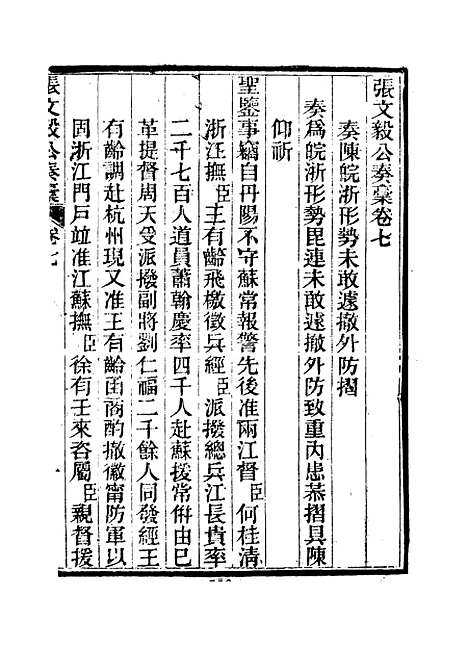 張文毅公奏稾卷七
奏陳皖浙形勢未敢遽撤外防摺
奏爲皖浙形勢毘連未敢遽撤外防致重內患恭摺具陳
仰祈
聖鑒事竊自丹陽不守蘇常報警先後准兩江督臣何桂清
浙江撫臣王有齡飛檄徵兵經臣派撥總兵江長貴率
二千七百人道員蕭翰慶率四千人赴蘇援常倂由已
革提督周天受派撥副將劉仁福二千餘人同發經王
有齡調赴杭州現又准王有齡函商酌撤徽甯防軍以
固浙江門戶竝准江蘇撫臣徐有壬來咨屬臣親督援
張文毅公奏稾 卷七 一